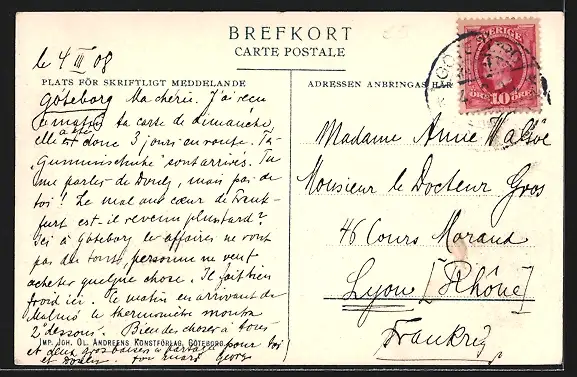 BREFKORT
CARTE POSTALE
le 4 III 08
PLATS FÖR SKRIFTLIGT MEDDELANDE
Göteborg Ma chérie. J'ai reçu
ce matin ta carte de dimanche,
elle a été donc 3 jours en route. Tes
"Gummischuhe" sont arrivés. Tu
me parles de Douly, mais pas de
toi! Le mal au cœur de Frank-
furt est-il revenu plus tard?
Ici à Göteborg les affaires ne vont
pas du tout, personne ne veut
acheter quelque chose. Il fait bien
froid ici. Ce matin en arrivant de
Malmö le thermomètre montra
2° dessous. Bien des choses à tous
et deux gros baisers à partager pour toi
et Douly. ton mari Georges
IMP. JOH. OL. ANDREENS KONSTFÖRLAG, GÖTEBORG
ADRESSEN ANBRINGAS HÄR
SVERIGE
ÖRE 10 ÖRE
Madame Anne
Monsieur le Docteur Gros
46 Cours Morand
Lyon [Rhône]
Frankrig